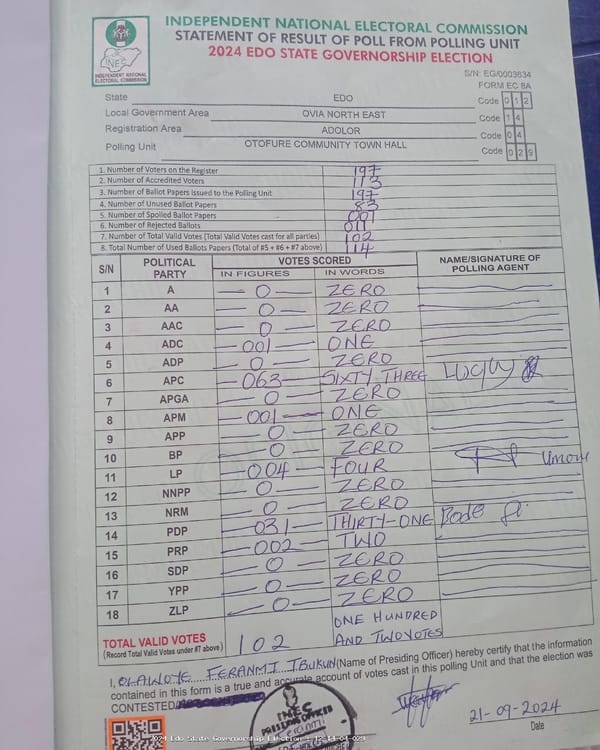 INDEPENDENT NATIONAL ELECTORAL COMMISSION
STATEMENT OF RESULT OF POLL FROM POLLING UNIT
2024 EDO STATE GOVERNORSHIP ELECTION
INEC
INDEPENDENT NATIONAL ELECTORAL COMMISSION
S/N: EG/0003634
FORM EC 8A
State EDO Code 0 1 2
Local Government Area OVIA NORTH EAST Code 1 4
Registration Area ADOLOR Code 0 4
Polling Unit OTOFURE COMMUNITY TOWN HALL Code 0 2 9
1. Number of Voters on the Register 197
2. Number of Accredited Voters 113
3. Number of Ballot Papers issued to the Polling Unit 197
4. Number of Unused Ballot Papers 83
5. Number of Spoiled Ballot Papers 001
6. Number of Rejected Ballots 011
7. Number of Total Valid Votes (Total Valid Votes cast for all parties) 102
8. Total Number of Used Ballots Papers (Total of #5 + #6 + #7 above) 114
S/N POLITICAL PARTY VOTES SCORED NAME/SIGNATURE OF POLLING AGENT
IN FIGURES IN WORDS
1 A 0 ZERO
2 AA 0 ZERO
3 AAC 0 ZERO
4 ADC 001 ONE
5 ADP 0 ZERO
6 APC 063 SIXTY THREE Lucky
7 APGA 0 ZERO
8 APM 001 ONE
9 APP 0 ZERO
10 BP 0 ZERO
11 LP 004 FOUR
12 NNPP 0 ZERO
13 NRM 0 ZERO
14 PDP 031 THIRTY-ONE
15 PRP 002 TWO
16 SDP 0 ZERO
17 YPP 0 ZERO
18 ZLP 0 ZERO
TOTAL VALID VOTES 102 ONE HUNDRED
(Record Total Valid Votes under #7 above) AND TWO VOTES
I, OLAWOYE FERANMI IBUKUN (Name of Presiding Officer) hereby certify that the information
contained in this form is a true and accurate account of votes cast in this polling Unit and that the election was
CONTESTED/
INEC
21-09-2024
Date
2024 Edo State Governorship Election - 12-14-04-029